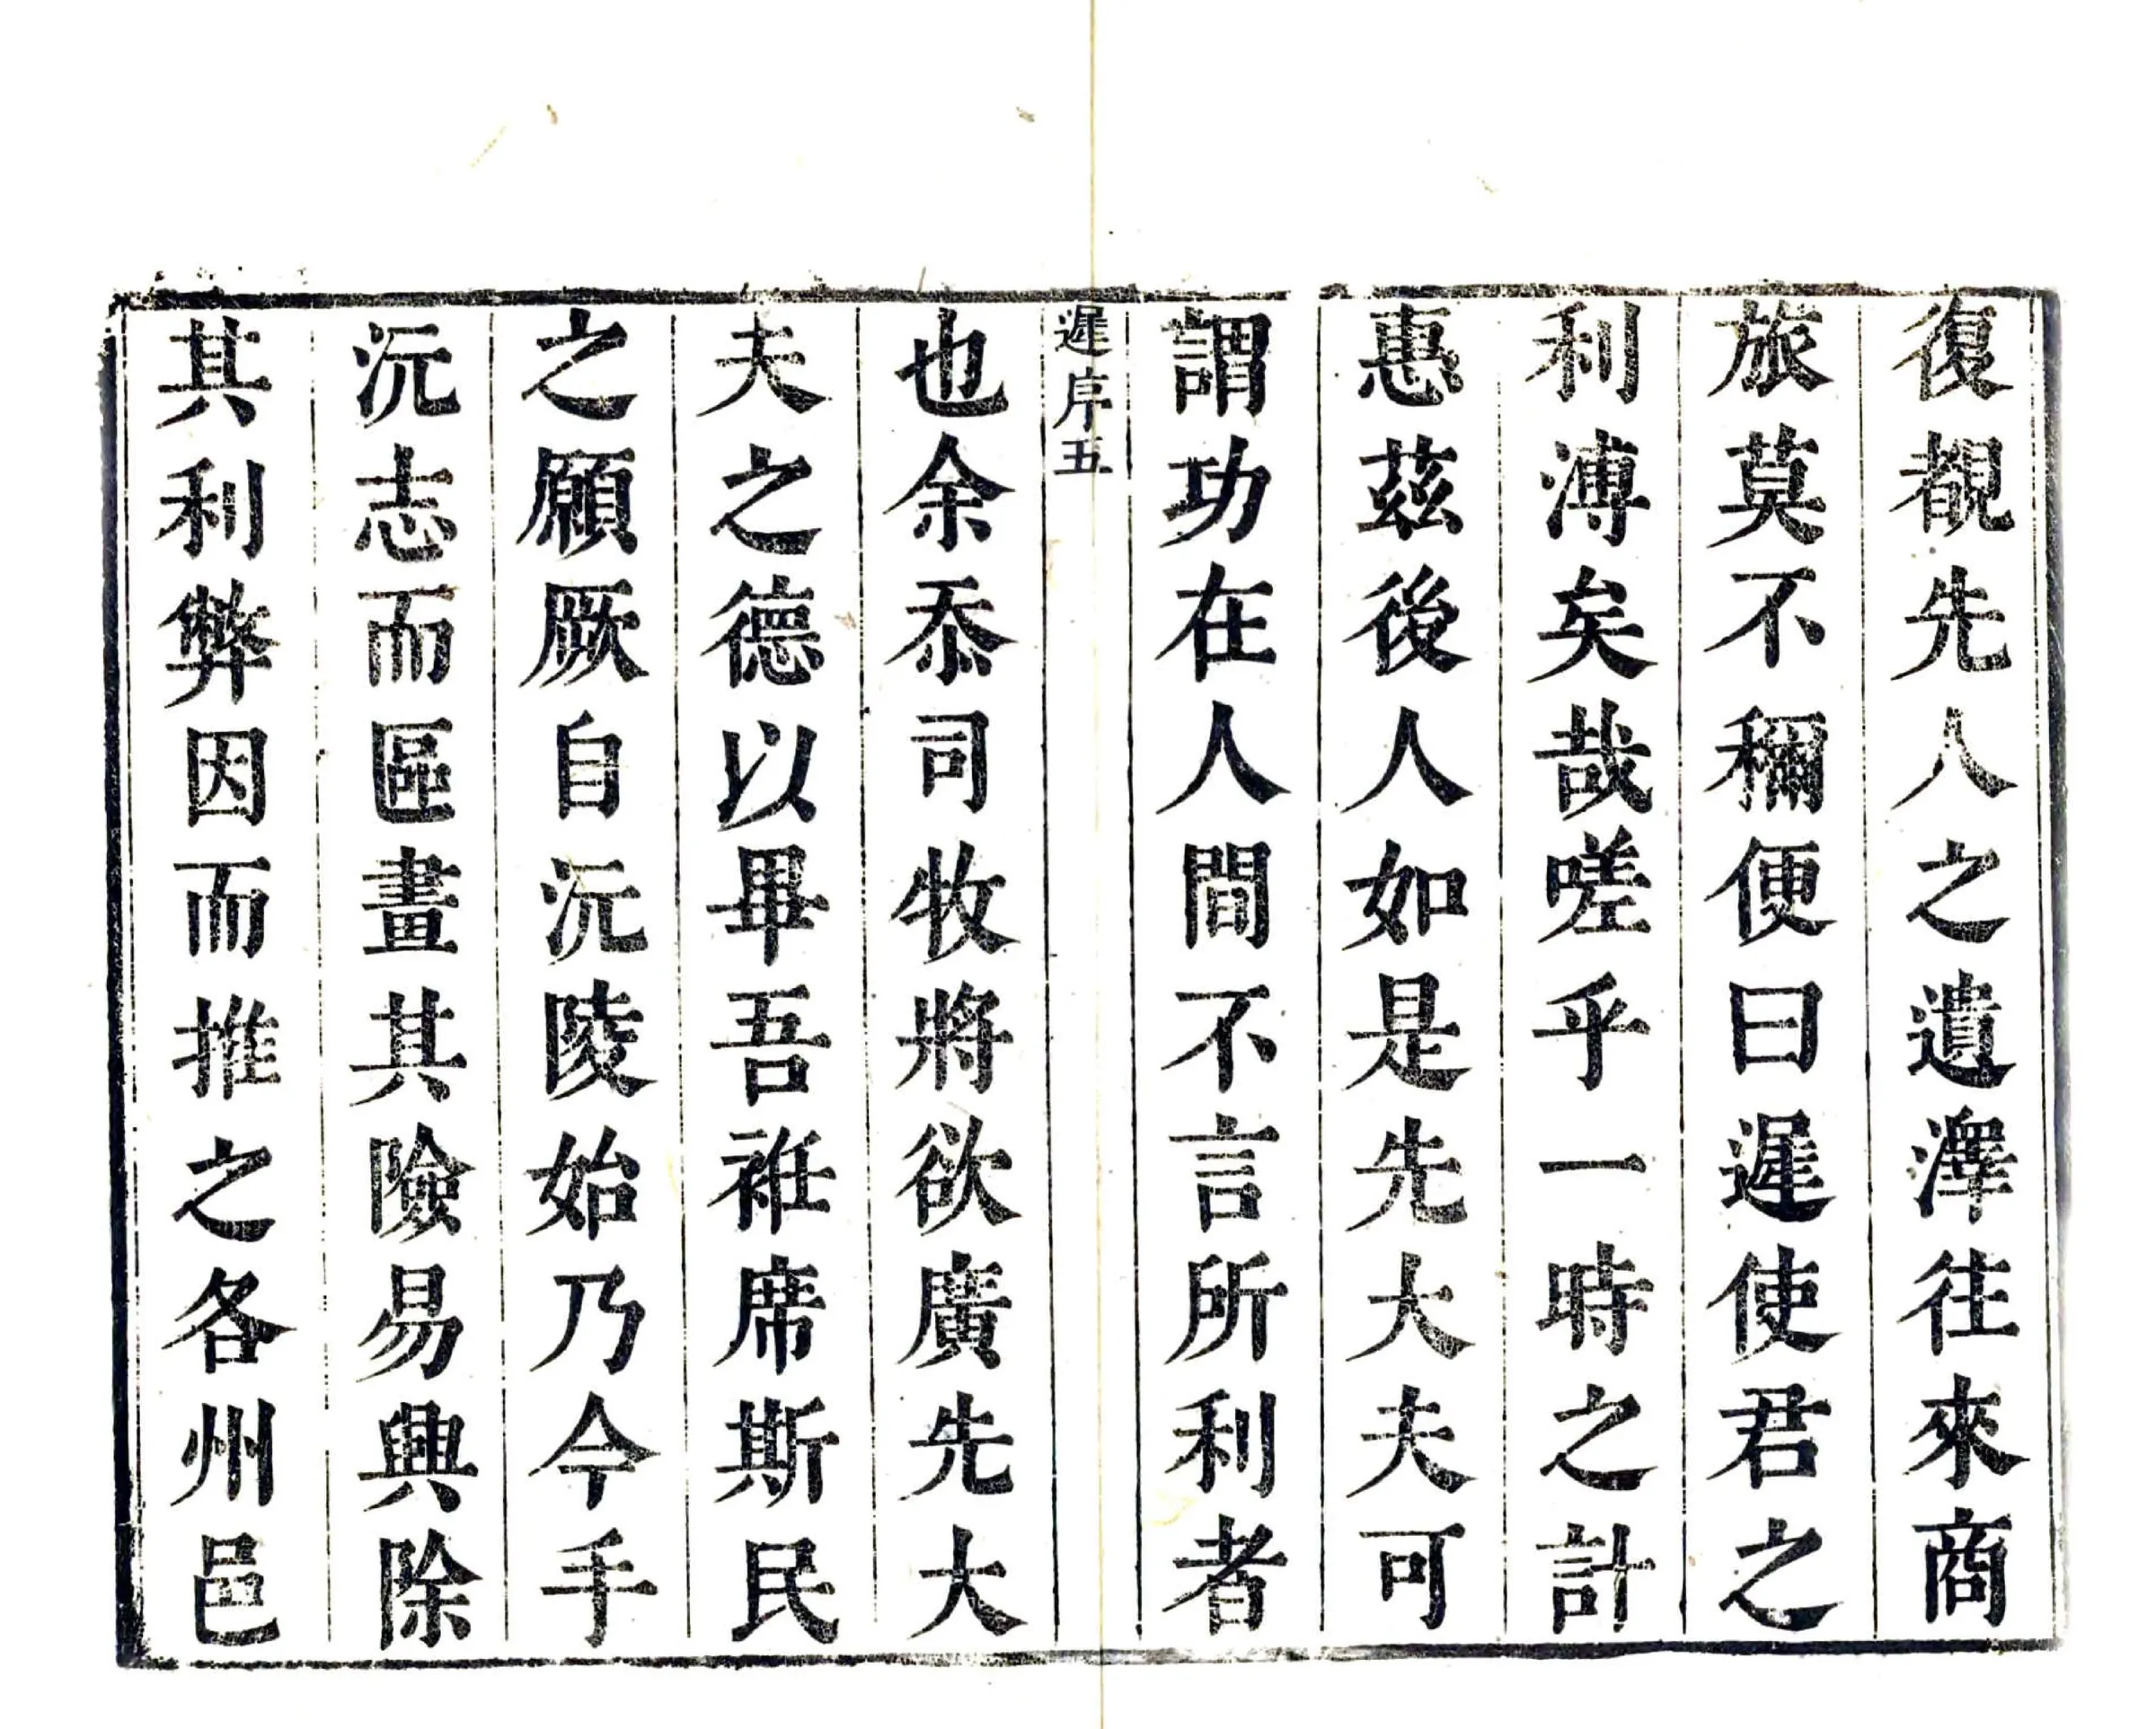 復覩先人之遺澤往來商
旅莫不稱便曰遲使君之
利溥矣哉嗟乎一時之計
惠茲後人如是先大夫可
謂功在人間不言所利者
遲序五
也余忝司牧將欲廣先大
夫之德以畢吾袵席斯民
之願厥自沅陵始乃今手
沅志而區畫其險易興除
其利弊因而推之各州邑